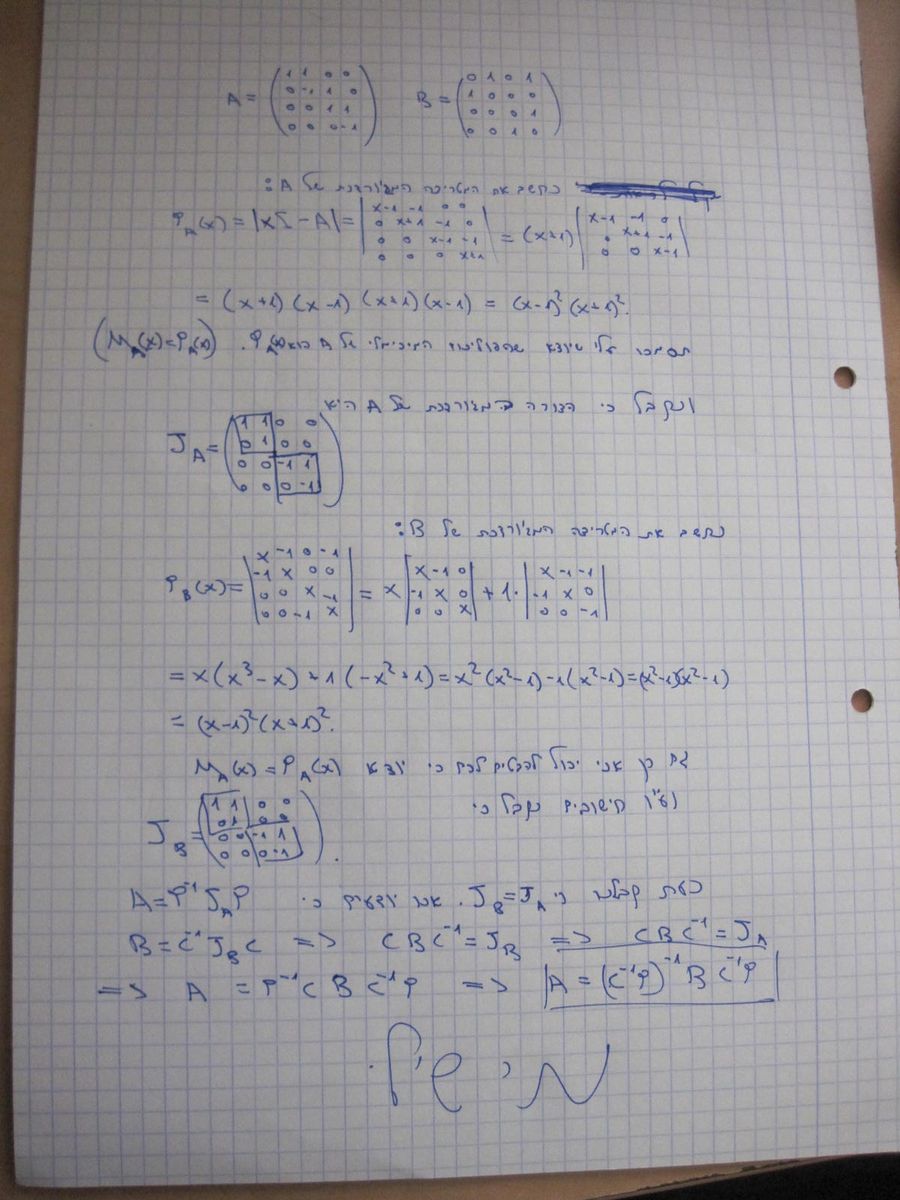 A = (1 1 0 0 / 0 -1 1 0 / 0 0 1 1 / 0 0 0 -1) B = (0 1 0 1 / 1 0 0 0 / 0 0 0 1 / 0 0 1 0)
נחשב את המטריצה המז'ורדנת של A:
P_A(x) = |xI - A| = |x-1 -1 0 0 / 0 x+1 -1 0 / 0 0 x-1 -1 / 0 0 0 x+1| = (x+1) |x-1 -1 0 / 0 x+1 -1 / 0 0 x-1|
= (x+1)(x-1)(x+1)(x-1) = (x-1)²(x+1)².
תסמכו עלי שיוצא שהפולינום המינימלי של A הוא P_A(x). (M_A(x)=P_A(x))
ונקבל כי הצורה המז'ורדנת של A היא
J_A = (1 1 0 0 / 0 1 0 0 / 0 0 -1 1 / 0 0 0 -1)
נחשב את המטריצה המז'ורדנת של B:
P_B(x) = |x -1 0 -1 / -1 x 0 0 / 0 0 x -1 / 0 0 -1 x| = x |x -1 0 / -1 x 0 / 0 0 x| + 1· |x -1 -1 / -1 x 0 / 0 0 -1|
= x(x³-x) + 1(-x²+1) = x²(x²-1) - 1(x²-1) = (x²-1)(x²-1)
= (x-1)²(x+1)².
גם כן אני יכול להבטיח לכם כי יוצא M_A(x) = P_A(x)
ועל חישובים נקבל כי
J_B = (1 1 0 0 / 0 1 0 0 / 0 0 -1 1 / 0 0 0 -1).
כעת קבלנו כי J_B=J_A. אנו יודעים כי A=P⁻¹J_AP
B = C⁻¹J_BC => CBC⁻¹=J_B => CBC⁻¹=J_A
=> A = P⁻¹CBC⁻¹P => A = (C⁻¹P)⁻¹BC⁻¹P
מ.ש.ל.